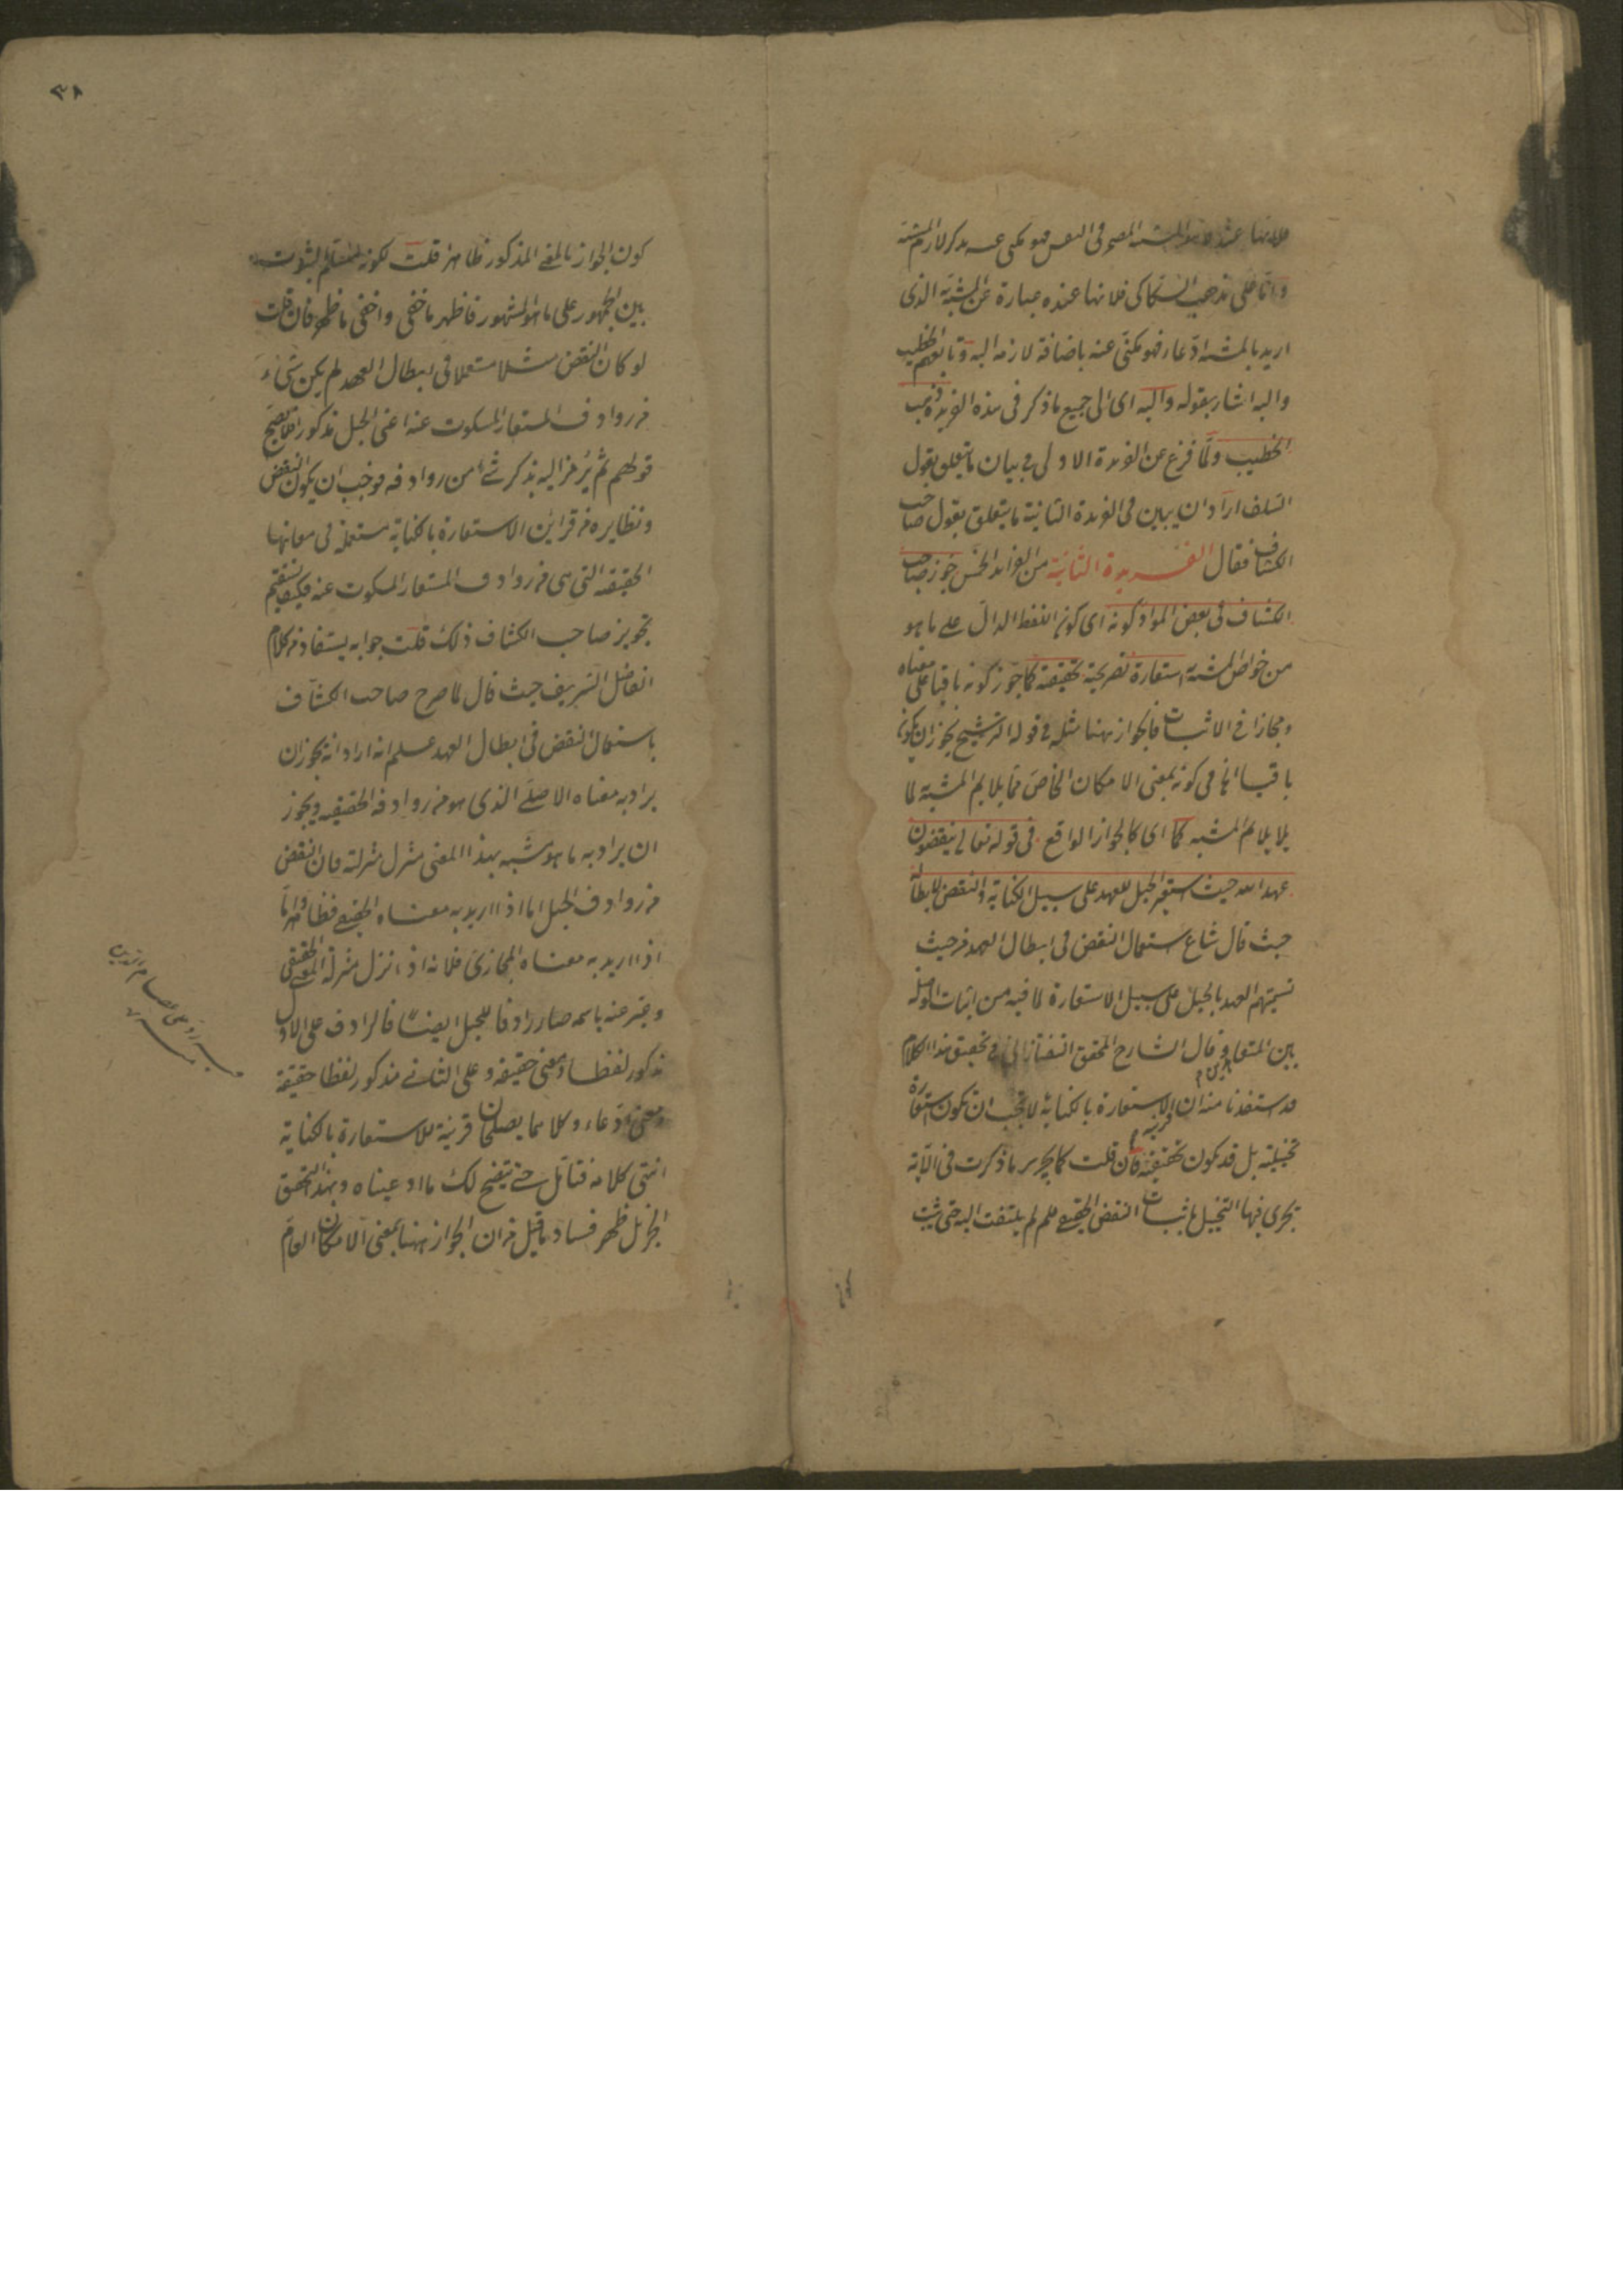 فلانها عنده التشبيه المضمر فى النفس فهو مكنى عنه بذكر لازم المشبه
واما على مذهب السكاكى فلانها عنده عبارة عن المشبه الذى
اريد بالمشبه ادعاء فهو مكنى عنه باضافة لازمه اليه وتابعهم الخطيب
واليه اشار بقوله واليه اى الى جميع ما ذكر فى هذه الفريدة ذهب
الخطيب ولما فرغ عن الفريدة الاولى فى بيان ما يتعلق بقول
السلف اراد ان يبين فى الفريدة الثانية ما يتعلق بقول صاحب
الكشاف فقال الفريدة الثانية من الفوائد الخمس جوز صاحب
الكشاف فى بعض المواد كونه اى كون اللفظ الدال على ما هو
من خواص المشبه استعارة تصريحية تحقيقية كما جوز كونه باقيا على معناه
ومجازا فى الاثبات فالجواز ههنا مثله فى قوله الترشيح يجوز ان يكون
باقيا انما هى كونه بمعنى الامكان الخاص مما يلايم المشبه لا
يلايم المشبه كما اى كالجواز الواقع فى قوله تعالى ينقضون
عهد الله حيث استعير الحبل للعهد على سبيل الكناية والنقض لابطاله
حيث قال شاع استعمال النقض فى ابطال العهد من حيث
تسميتهم العهد بالحبل على سبيل الاستعارة لما فيه من اثبات الوصلة
بين المتعاهدين وقال الشارح المحقق التفتازانى فى تحقيق هذا الكلام
قد استفدنا منه ان قرينة الاستعارة بالكناية لا تجب ان تكون استعارة
تخييلية بل قد تكون تحقيقية فان قلت كما يجرى ما ذكرت فى الآية
يجرى فيها التخييل باثبات النقض الحقيقى فلم لم يلتفت اليه حتى يثبت
٣٨
كون الجواز بالمعنى المذكور ظاهرا قلت لكونه مسلم الثبوت
بين الجمهور على ما هو المشهور فاظهر ما خفى واخفى ما ظهر فان قلت
لو كان النقض مثلا مستعملا فى ابطال العهد لم يكن شىء
من روادف المستعار المسكوت عنه اعنى الحبل مذكورا فلا يصح
قولهم ثم يرمز اليه بذكر شئ من روادفه فوجب ان يكون النقض
ونظايره من قراين الاستعارة بالكناية مستعملة فى معانيها
الحقيقة التى هى من روادف المستعار المسكوت عنه فكيف يستقيم
تجويز صاحب الكشاف ذلك قلت جوابه يستفاد من كلام
الفاضل الشريف حيث قال لما صرح صاحب الكشاف
باستعمال النقض فى ابطال العهد علم انه اراد انه يجوز ان
يراد به معناه الاصلى الذى هو من روادفه الحقيقية ويجوز
ان يراد به ما هو مشبه بهذا المعنى منزل منزلته فان النقض
من روادف الحبل اما اذا اريد به معناه الحقيقى فظاهر واما
اذا اريد به معناه المجازى فلانه اذا نزل منزلة المعنى الحقيقى
وعبر عنه باسمه صار رادفا للحبل ايضا فالرادف على الاول
مذكور لفظا ومعنى حقيقة وعلى الثانى مذكور لفظا حقيقة
ومعنى ادعاء وكلاهما يصلحان قرينة للاستعارة بالكناية
انتهى كلامه فتامل حتى يتضح لك ما ادعيناه وبهذا التحقيق
الجزيل ظهر فساد ما قيل من ان الجواز ههنا بمعنى الامكان العام